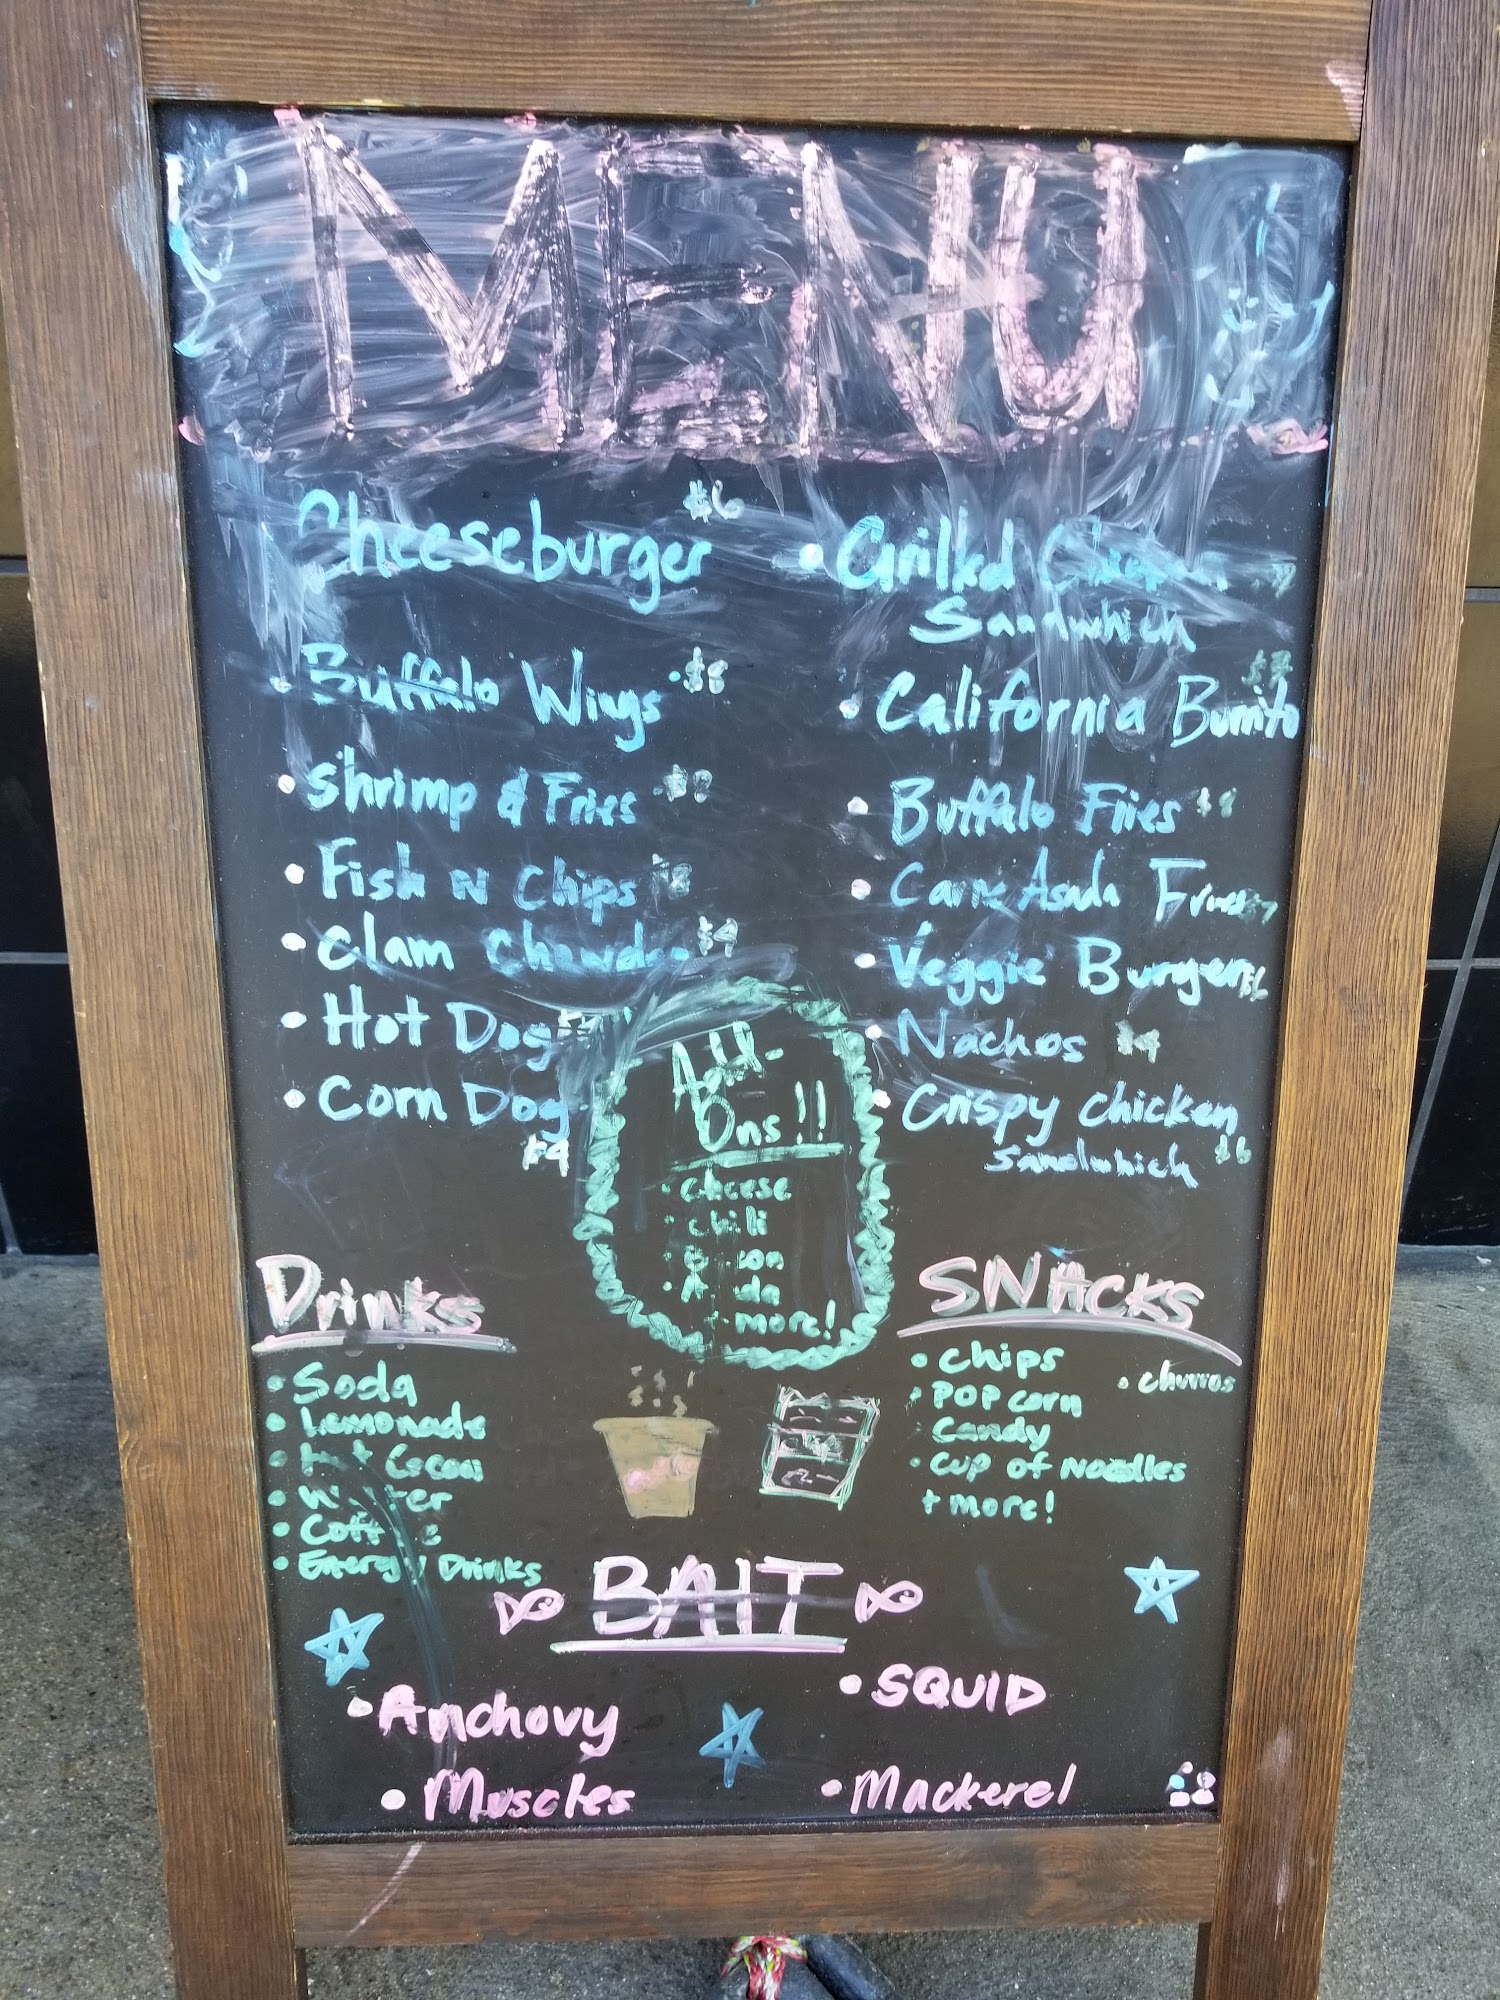 MENU
Cheeseburger $6
• Buffalo Wings • $8
• Shrimp & Fries
• Fish N Chips
• Clam Chowder $4
• Hot Dog
• Corn Dog
$4
• Grilled Chicken
Sandwhich
• California Burrito
• Buffalo Fries $8
• Carne Asada Fries
• Veggie Burger $6
• Nachos $4
• Crispy Chicken
Sandwhich $6
Add-
Ons!!
• Cheese
• Chili
• Bacon
+ more!
Drinks
• Soda
• Lemonade
• Hot Cocoa
• Water
• Coffee
• Energy Drinks
SNACKS
• Chips
• Churros
• POP corn
• Candy
• Cup of Noodles
+ more!
BAIT
• Anchovy
• SQUID
• Muscles
• Mackerel